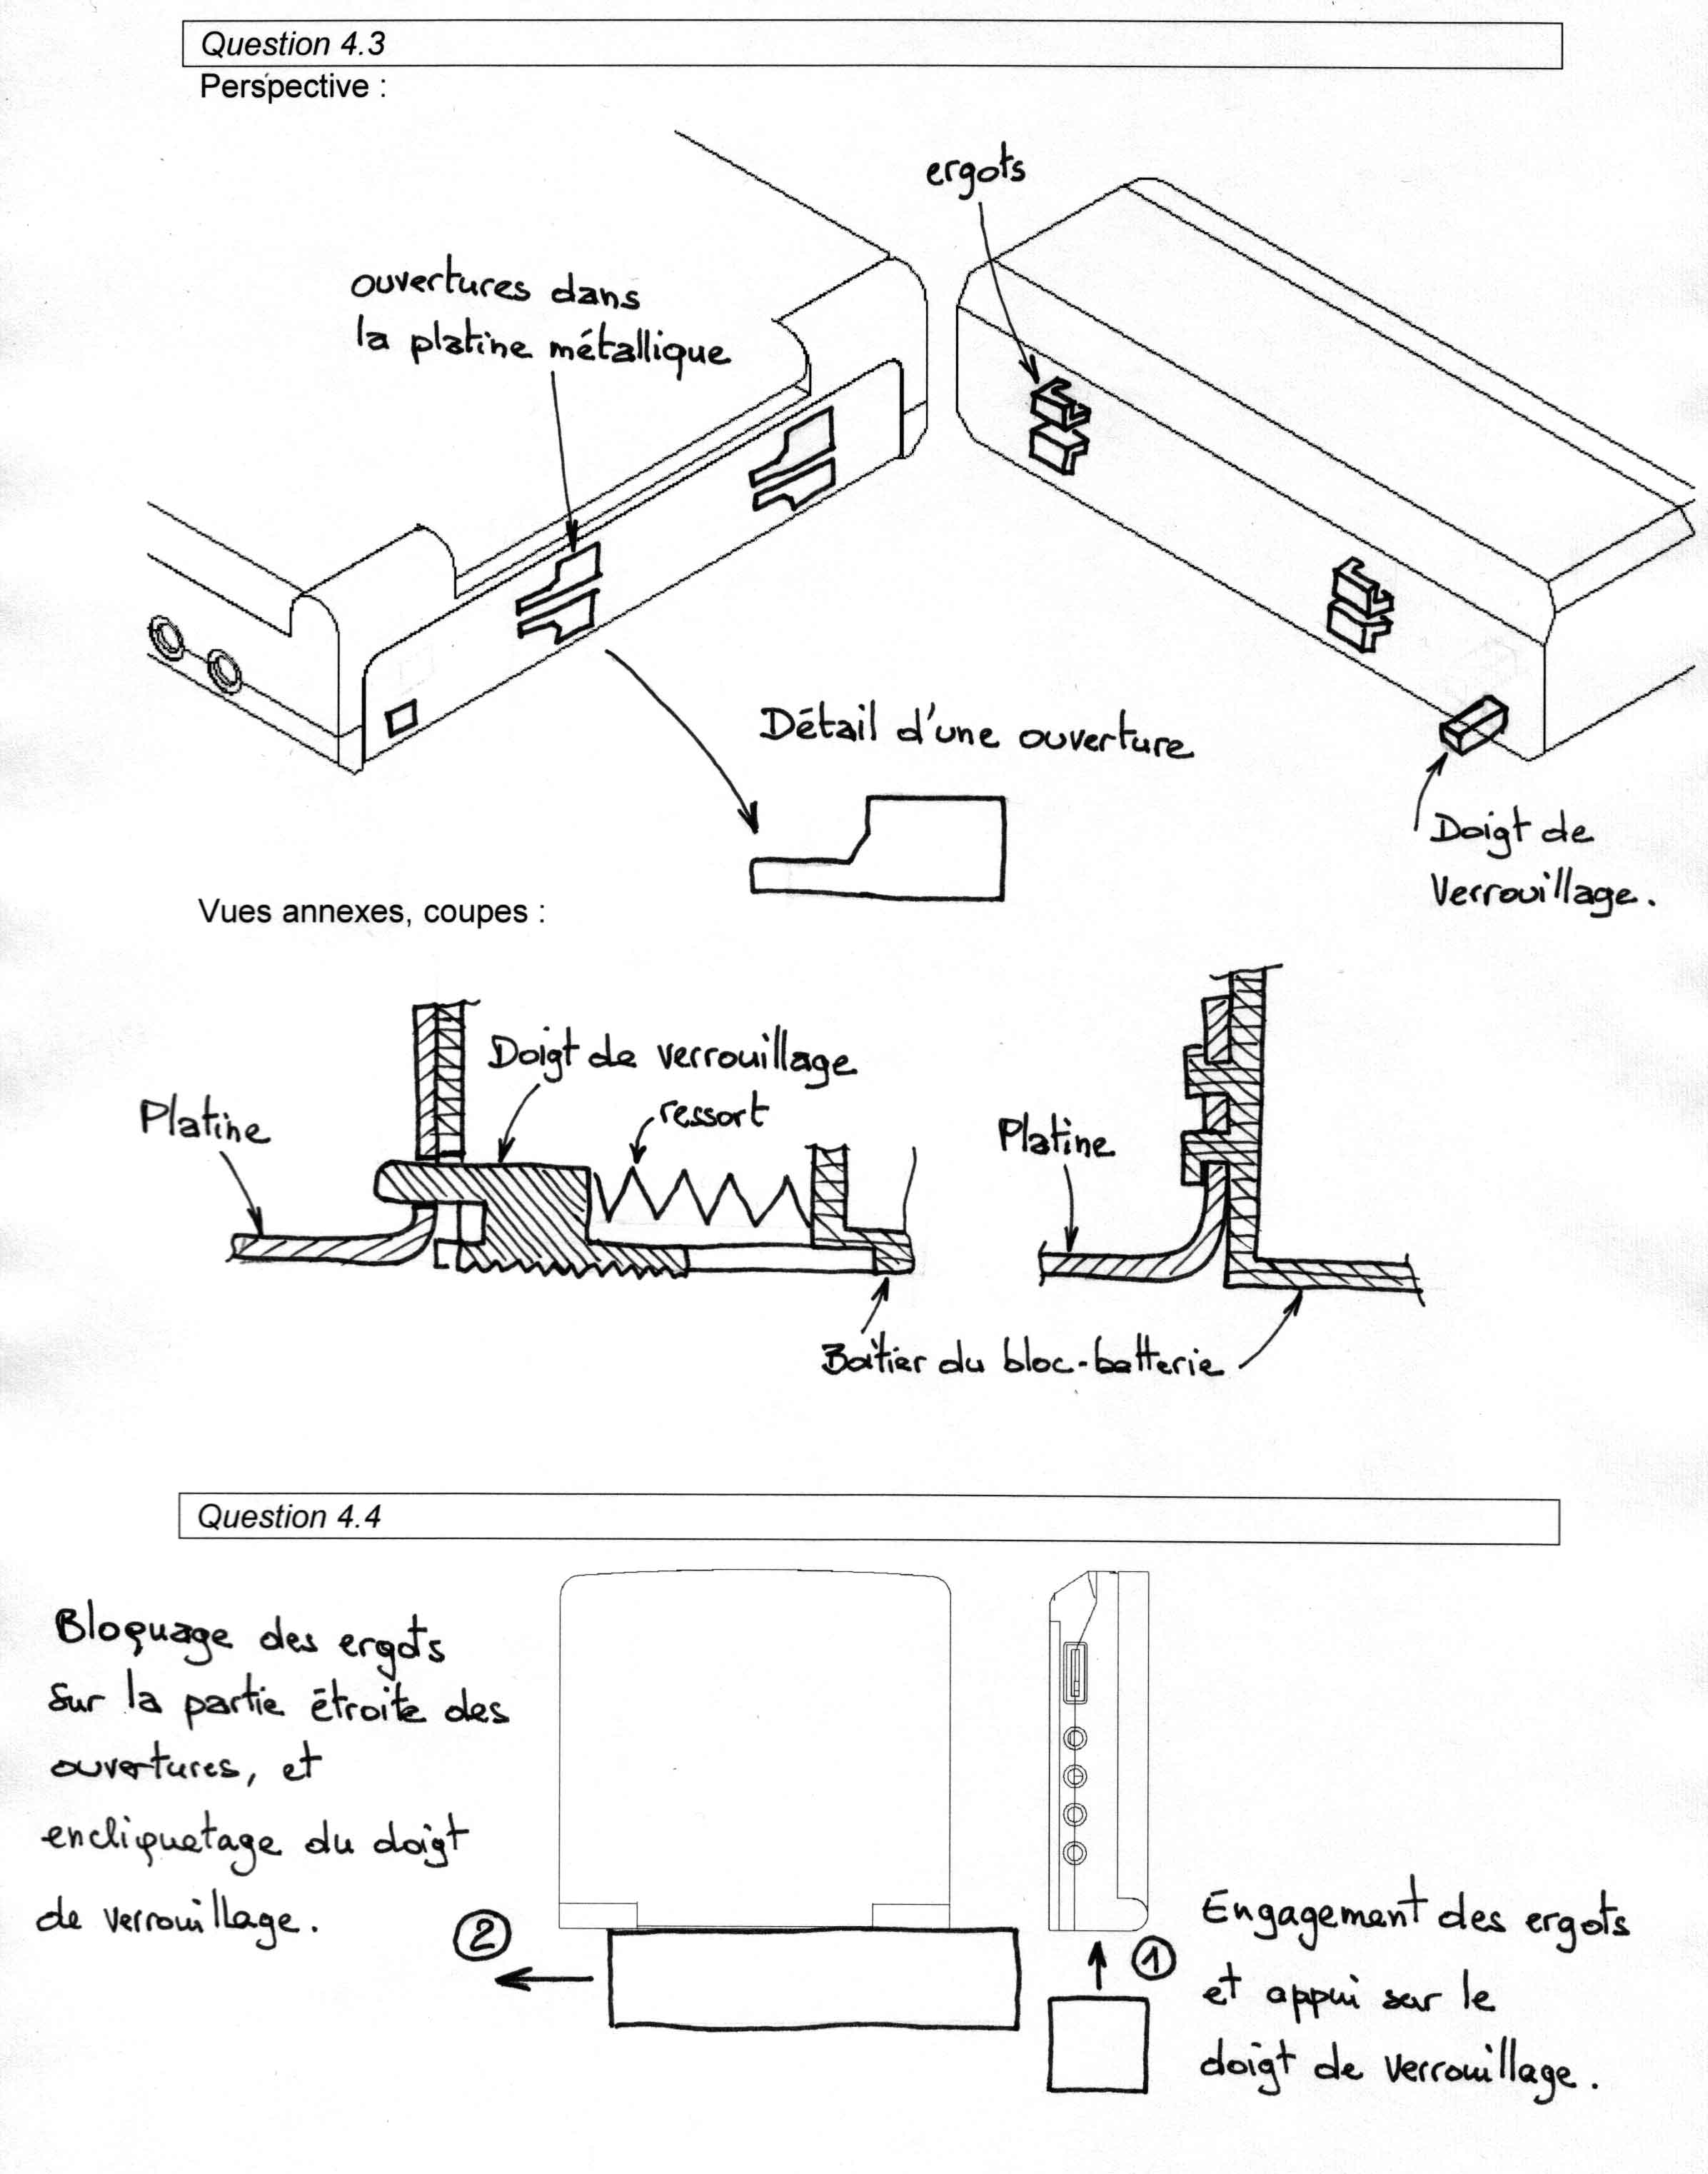 Question 4.3
Perspective :
ergots
ouvertures dans
la platine métallique
Détail d'une ouverture
Doigt de
Verrouillage.
Vues annexes, coupes :
Doigt de verrouillage
ressort
Platine
Platine
Boîtier du bloc-batterie
Question 4.4
Bloquage des ergots
sur la partie étroite des
ouvertures, et
encliquetage du doigt
de verrouillage.
2
1
Engagement des ergots
et appui sur le
doigt de verrouillage.